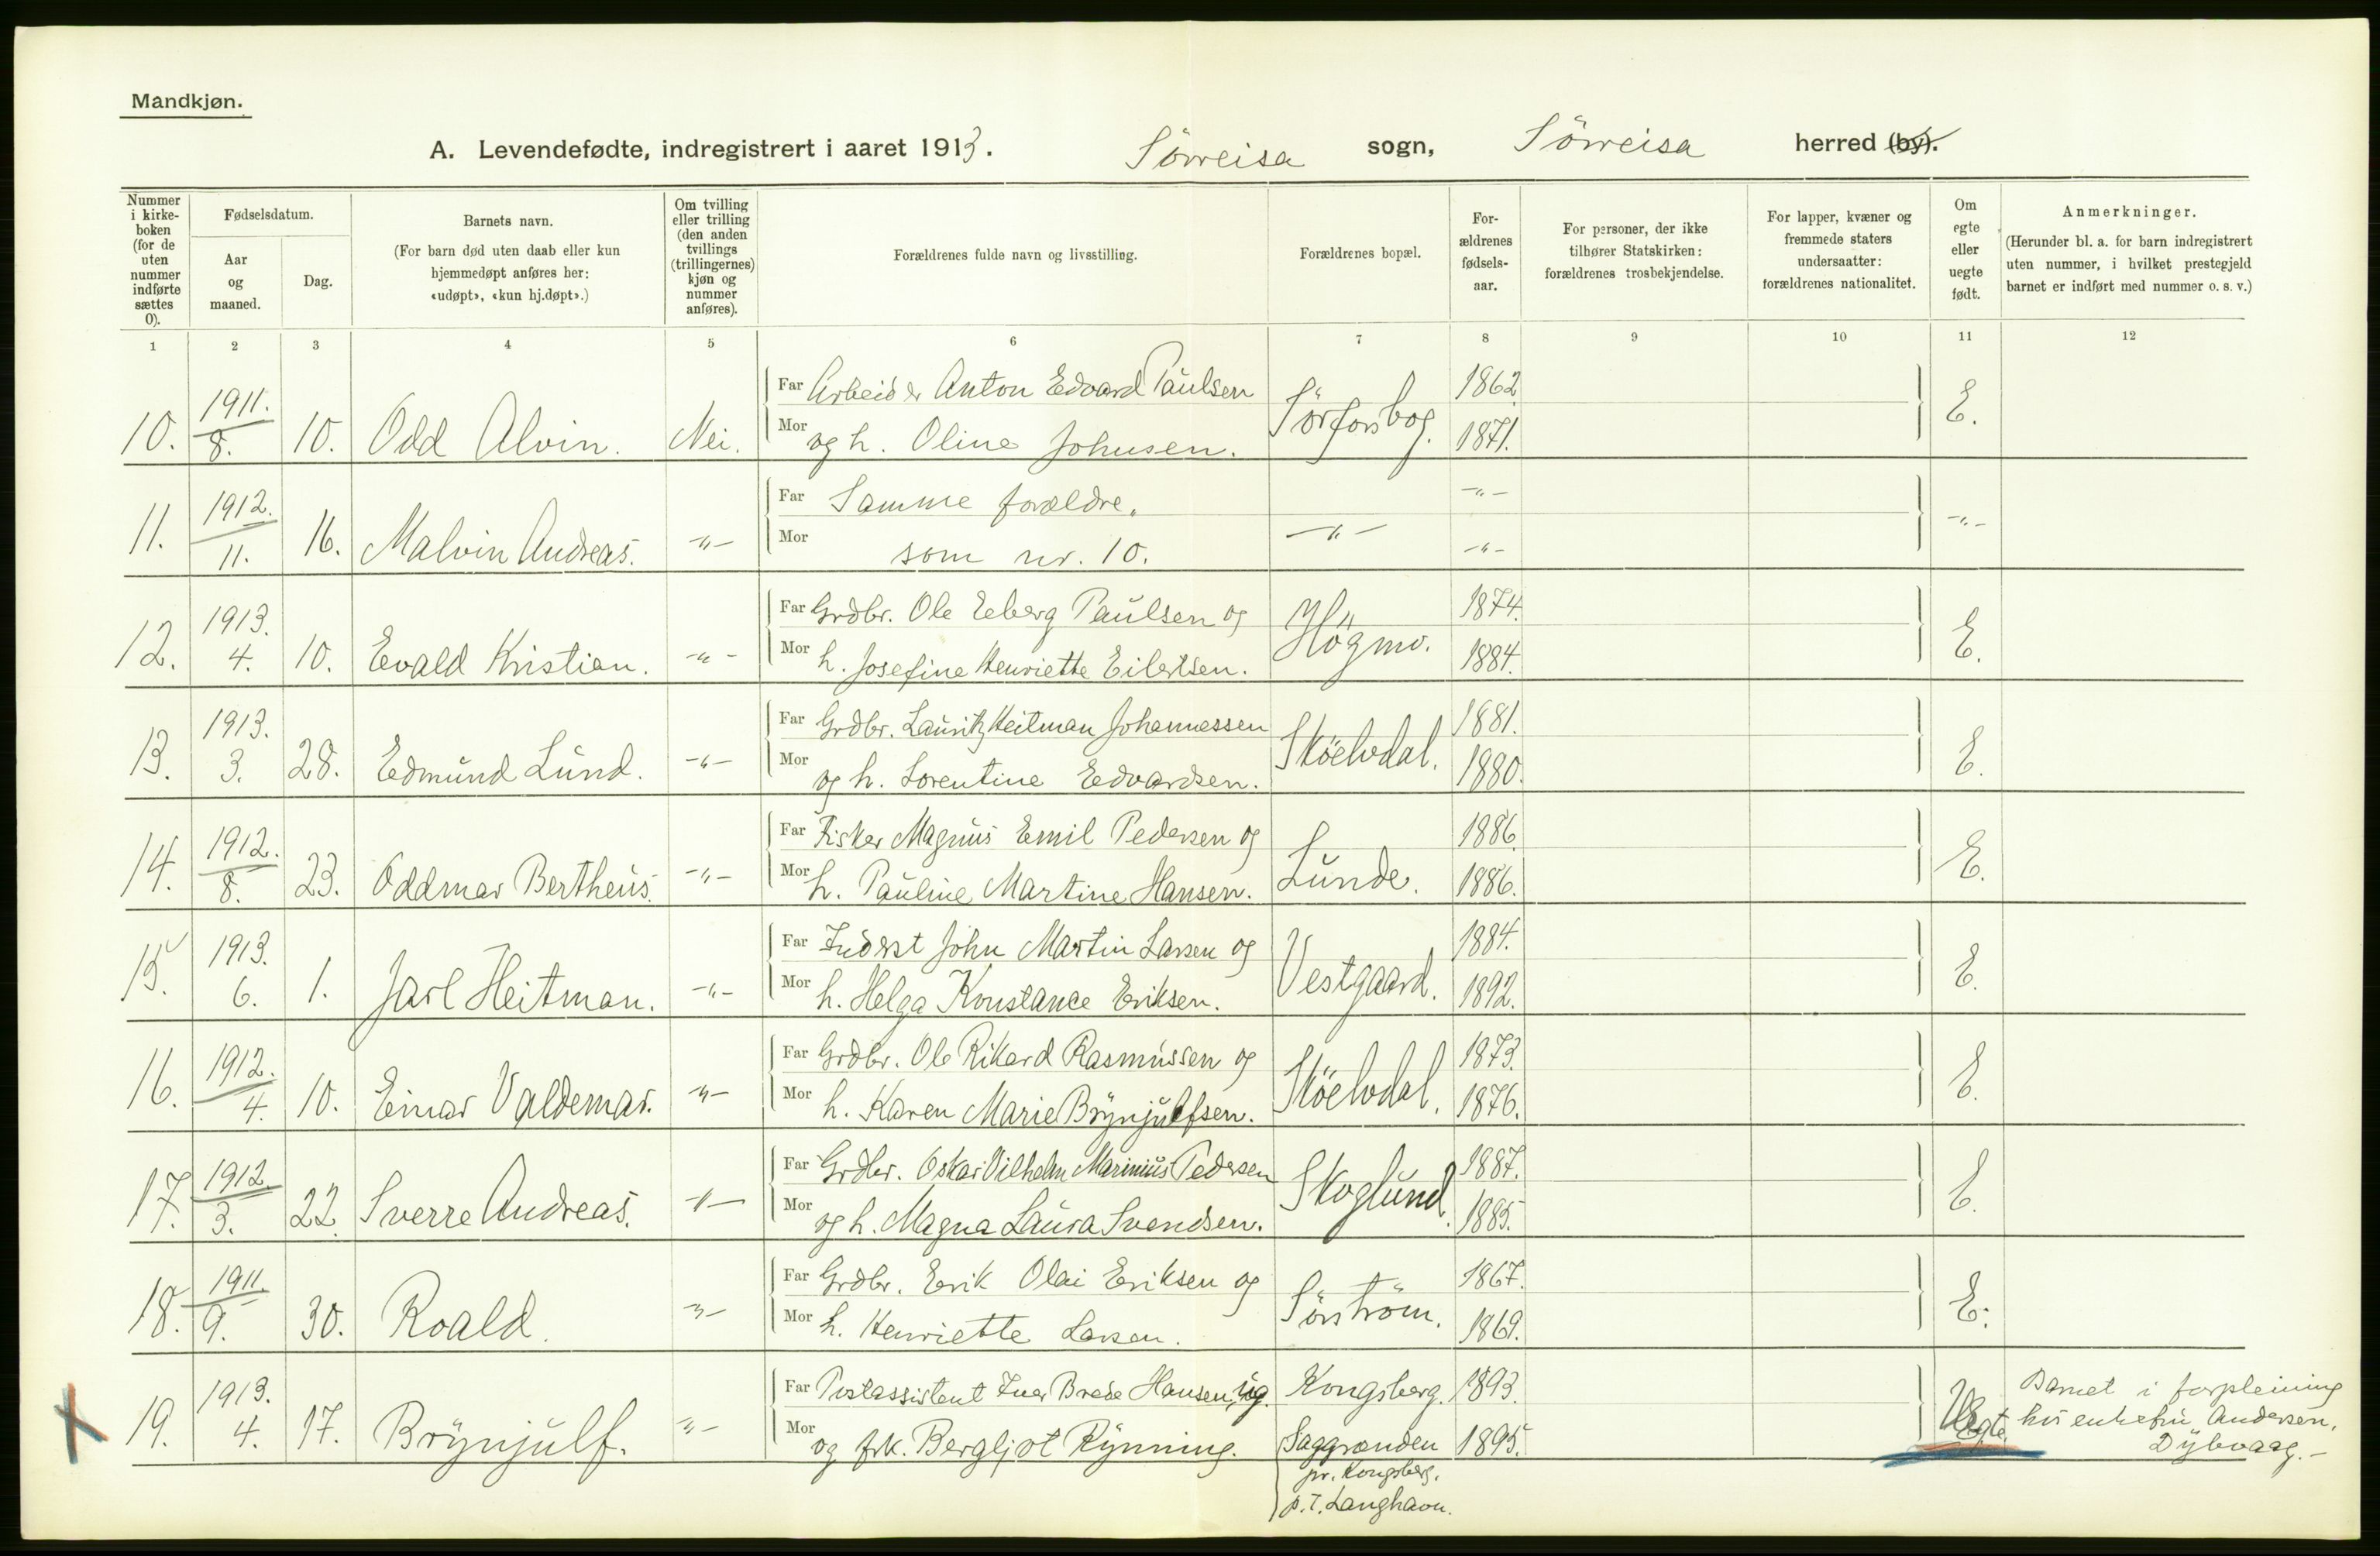 Mandkjøn.
A. Levendefødte, indregistrert i aaret 1913. Sörreisa sogn, Sörreisa herred (by).
Nummer i kirke-boken (for de uten nummer indførte sættes 0).
Fødselsdatum.
Aar og maaned.
Dag.
Barnets navn.
(For barn død uten daab eller kun hjemmedøpt anføres her: «udøpt», «kun hj.døpt».)
Om tvilling eller trilling (den anden tvillings (trillingernes) kjøn og nummer anføres).
Forældrenes fulde navn og livsstilling.
Forældrenes bopæl.
For-ældrenes fødsels-aar.
For personer, der ikke tilhører Statskirken: forældrenes trosbekjendelse.
For lapper, kvæner og fremmede staters undersaatter: forældrenes nationalitet.
Om egte eller uegte født.
Anmerkninger.
(Herunder bl. a. for barn indregistrert uten nummer, i hvilket prestegjeld barnet er indført med nummer o. s. v.)
1 2 3 4 5 6 7 8 9 10 11 12
Far Arbeider Anton Edvard Paulsen 1862
10. 1911. 8. 10. Odd Alvin. Nei. Mor og h. Oline Johnsen. Sörforsbog. 1871. E.
Far Samme forældre. -"-
11. 1912. 11. 16. Malvin Andreas. -"- Mor som nr. 10. -"- -"- -"-
Far Grdbr. Ole Edberg Paulsen og 1874.
12. 1913. 4. 10. Evald Kristian. -"- Mor h. Josefine Henriette Eilertsen. Högmo. 1884. E.
Far Grdbr. Lauritz Heitman Johannessen 1881.
13. 1913. 3. 28. Edmund Lund. -"- Mor og h. Lorentine Edvardsen. Sköelvdal. 1880. E.
Far Fisker Magnus Emil Pedersen og 1886.
14. 1912. 8. 23. Oddmar Bertheus. -"- Mor h. Pauline Martine Hansen. Lunde. 1886. E.
Far Inderst John Martin Larsen og 1884.
15. 1913. 6. 1. Jarl Heitman. -"- Mor h. Helga Konstance Eriksen. Vestgaard. 1892. E.
Far Grdbr. Ole Rikard Rasmussen og 1873.
16. 1912. 4. 10. Einar Valdemar. -"- Mor h. Karen Marie Brynjulfsen. Sköelvdal. 1876. E.
Far Grdbr. Oskar Vilhelm Marinius Pedersen 1887.
17. 1912. 3. 22. Sverre Andreas. -"- Mor og h. Magna Laura Svendsen. Skoglund. 1885. E.
Far Grdbr. Erik Olai Eriksen og 1867.
18. 1911. 9. 30. Roald. -"- Mor h. Henriette Larsen. Sörström. 1869. E.
Far Postassistent Iver Brede Hansen, ug. Kongsberg. 1893.
19. 1913. 4. 17. Brynjulf. -"- Mor og frk. Bergljot Rynning. Saggrenden 1895. Uegte.
pr. Kongsberg.
p.T. Langhavn.
Barnet i forpleining
hos enkefru Andersen,
Dybvaag.-